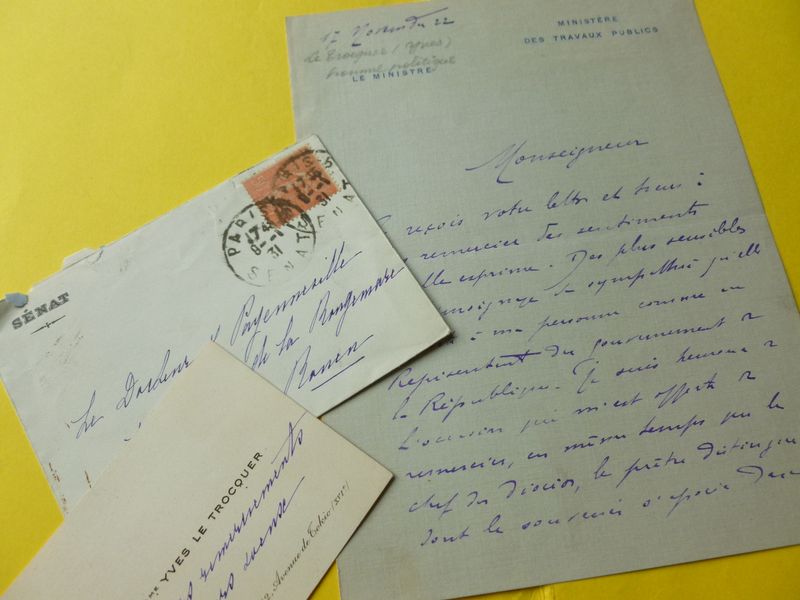 17 novembre 22
Le Trocquer (Yves)
homme politique
MINISTÈRE
DES TRAVAUX PUBLICS
LE MINISTRE
Monseigneur
reçois votre lettre et tiens à
remercier des sentiments
elle exprime. Des plus sensibles
témoignage de sympathie qu'elle
à ma personne comme au
Représentant du gouvernement de
la République. Je suis heureux de
l'occasion qui m'est offerte de
remercier, en même temps que le
chef du Diocèse, le prêtre distingué
dont le souvenir
PARIS
17 45
8 - 1
31
SENAT
SÉNAT
Le Docteur
de la Rougemare
Rouen
YVES LE TROCQUER
remerciements
Avenue de Tokio (XVIe)